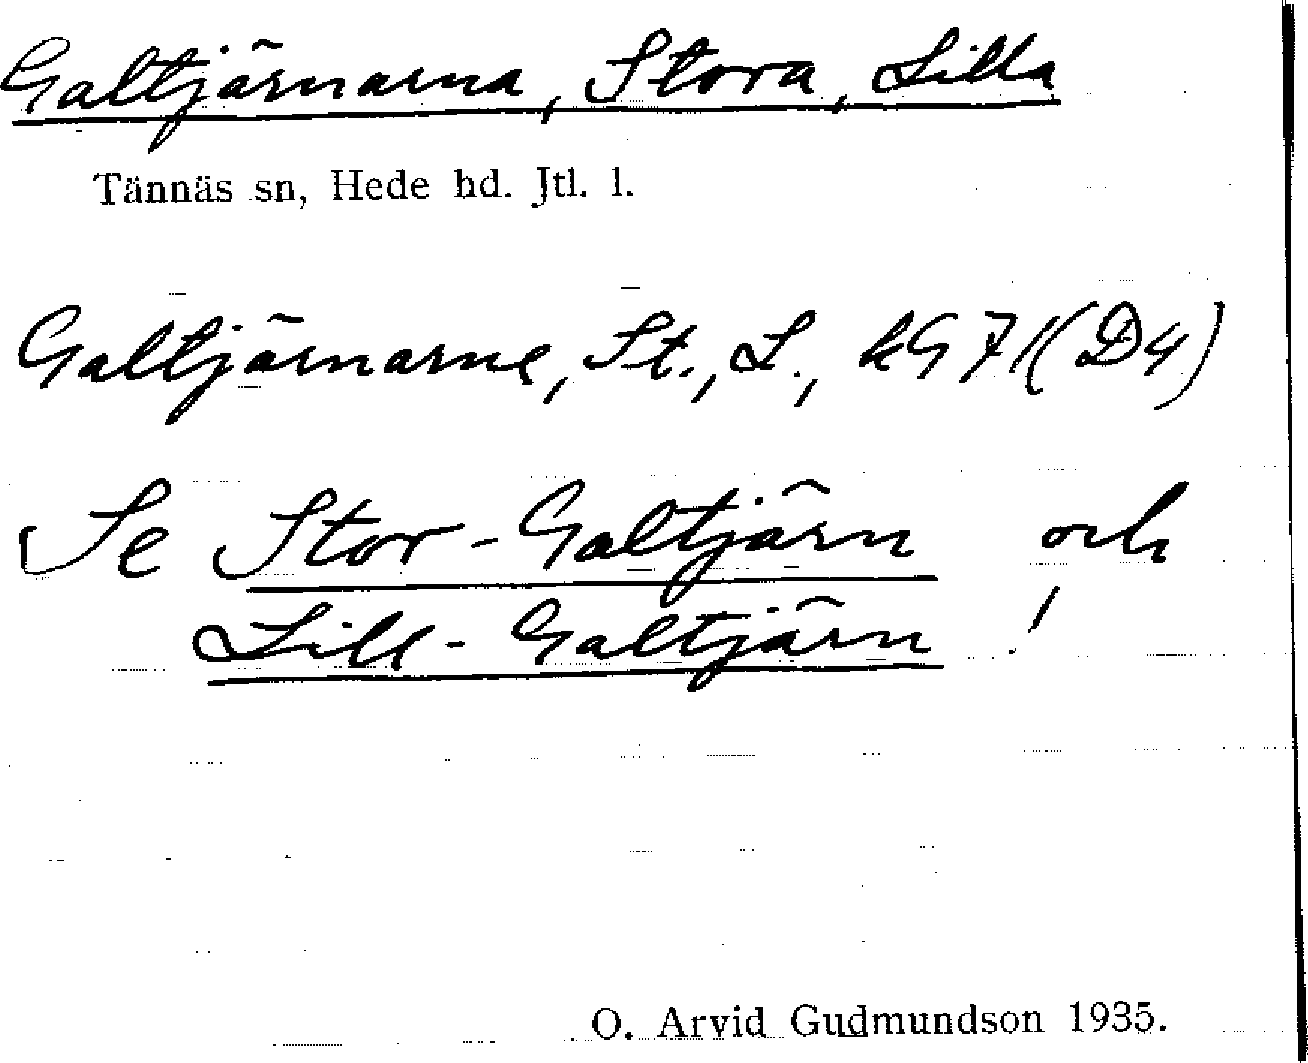 Galtjärnarna, Stora, Lilla
Tännäs sn, Hede hd. Jtl. l.
Galtjärnarne, St., L., kG 71 (D4)
Se Stor-Galtjärn och
Lill-Galtjärn!
O. Arvid Gudmundson 1935.